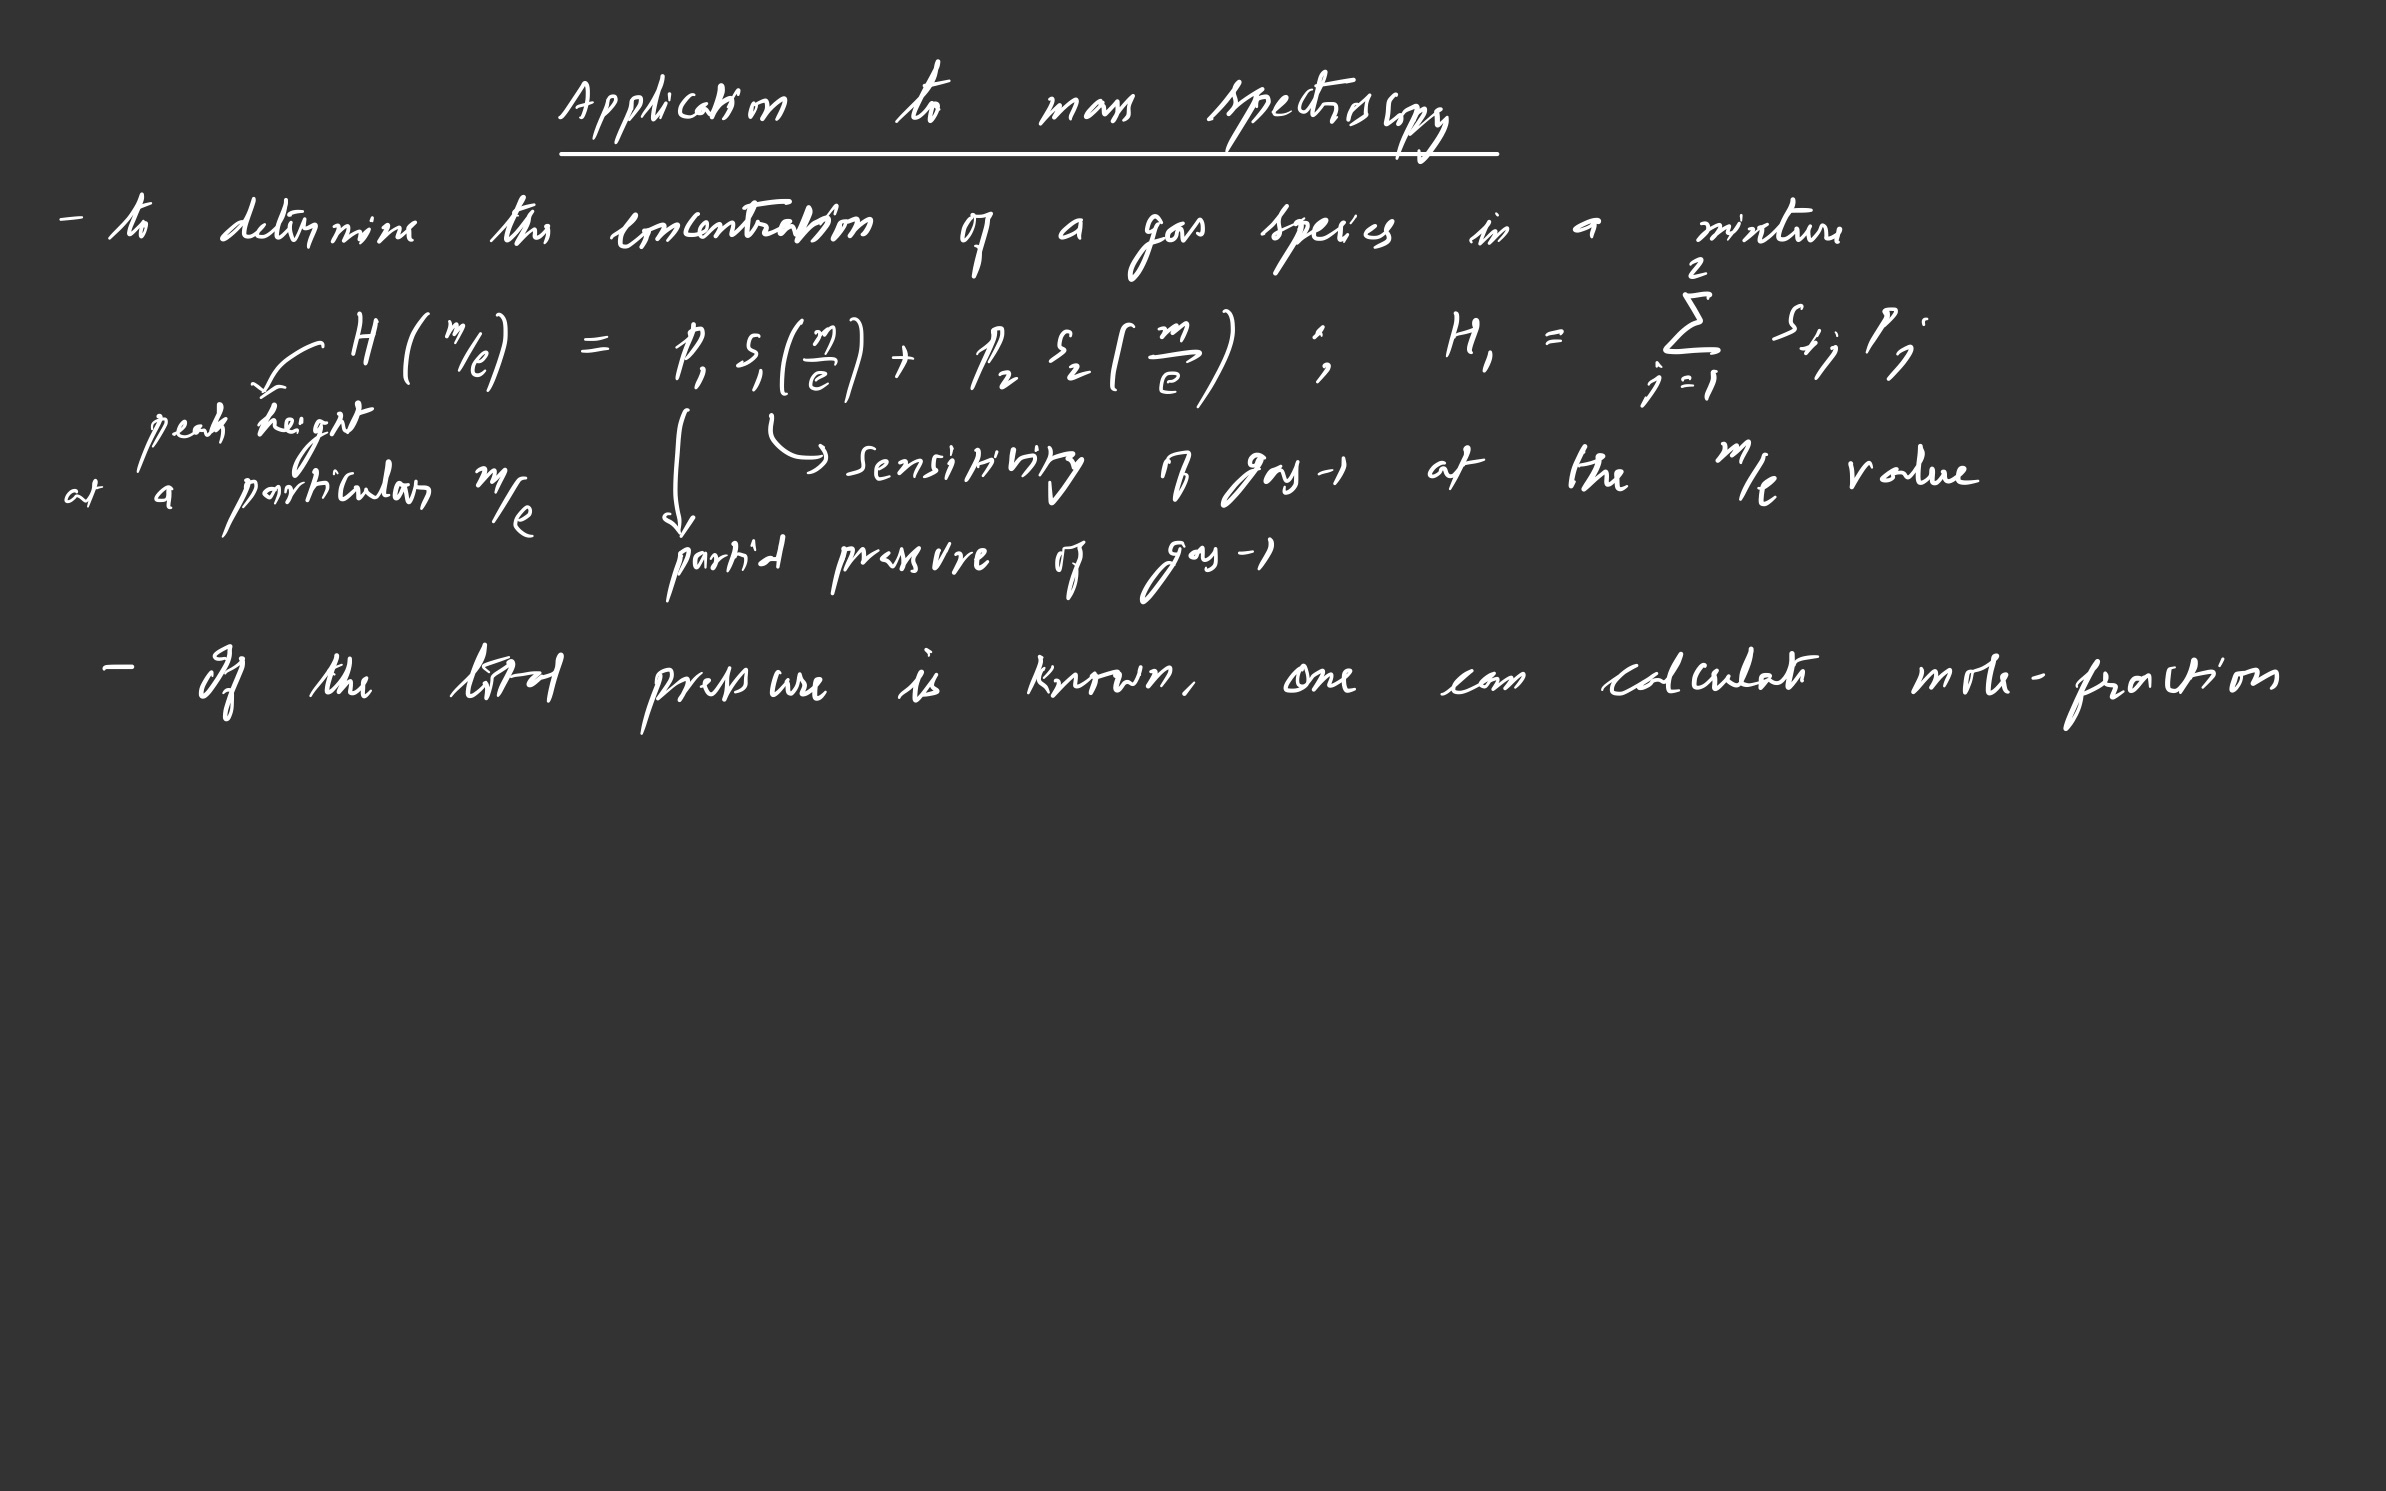 Application to mass spectroscopy
- to determine the concentration of a gas species in a mixture
H (m/e) = P₁ S₁ (m/e) + P₂ S₂ (m/e) ; H₁ = ∑_{j=1}^{2} S₁,j Pj
peak height
at a particular m/e
sensitivity of gas-1 at the m/e value
partial pressure of gas-1
- If the total pressure is known, one can calculate mole-fraction